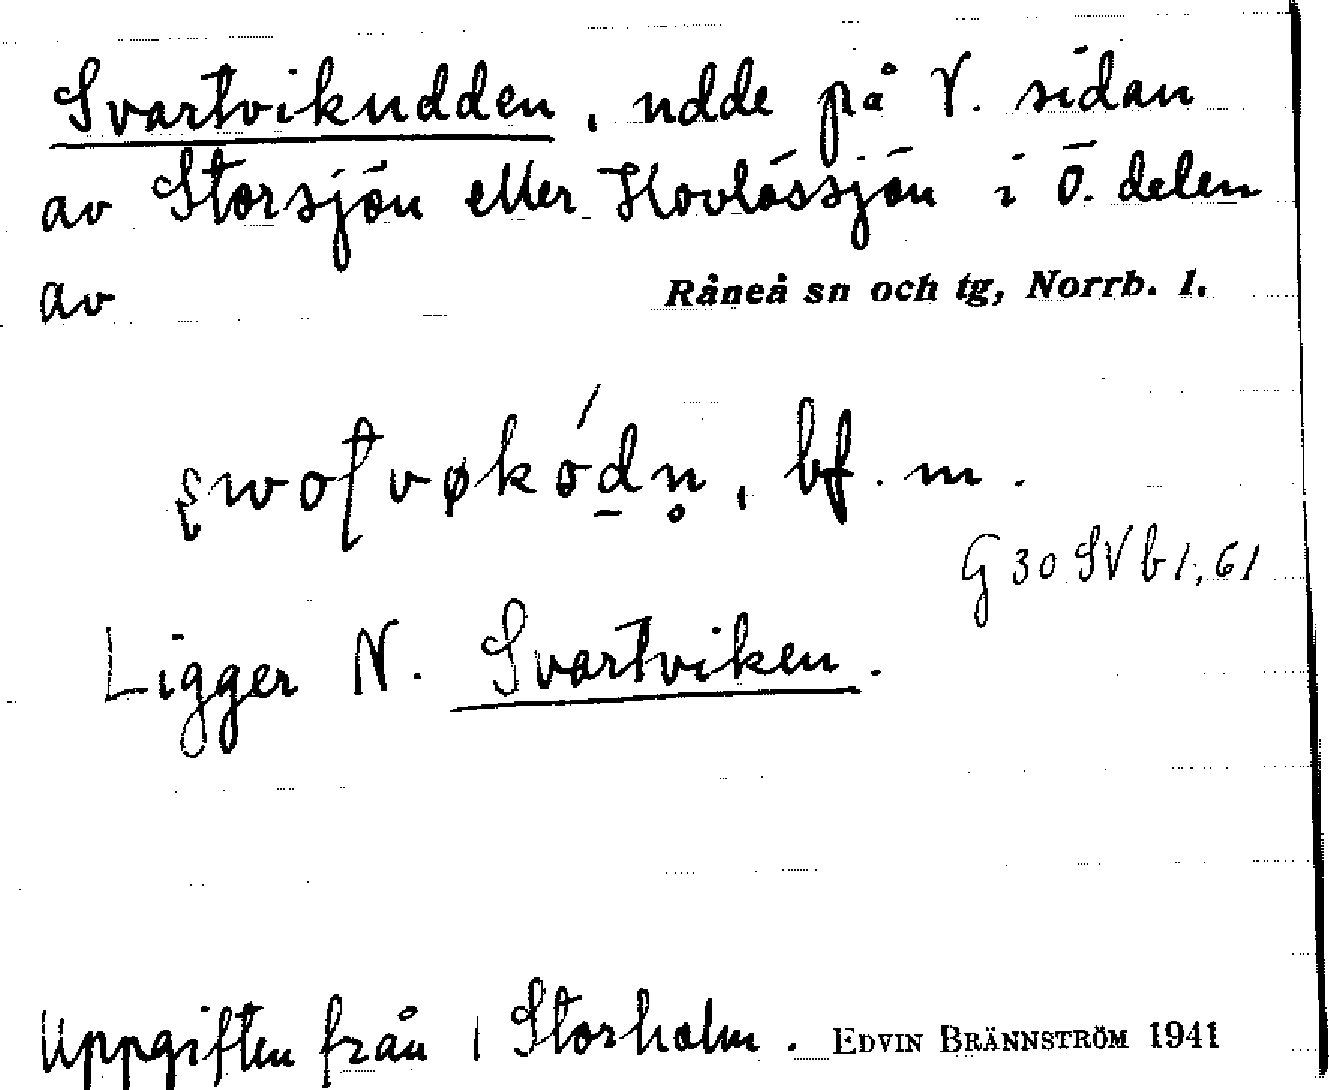 Svartvikudden, udde på V. sidan
av Storsjön eller Hovlössjön i Ö. delen
av Råneå sn och tg, Norrb. l.
bf. m.
G 30 SV b 1, 61
Ligger N. Svartviken.
Uppgiften från Storholm. EDVIN BRÄNNSTRÖM 1941